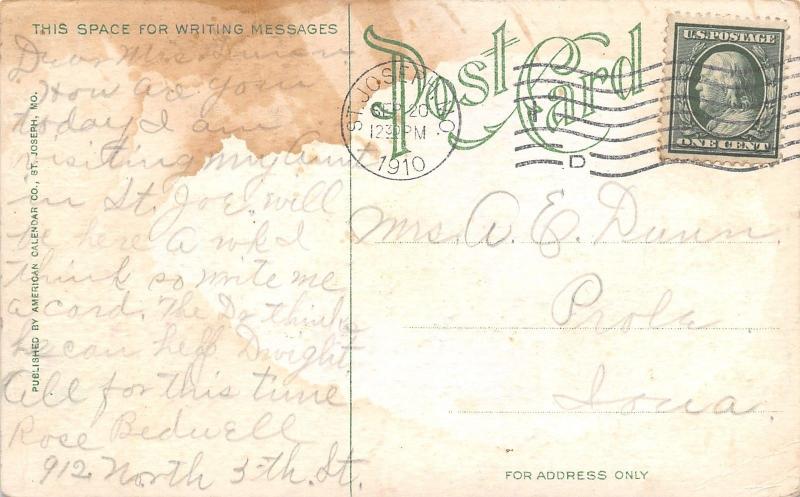 THIS SPACE FOR WRITING MESSAGES
Post Card
Dear Mrs. Dunn
How are you
today I am
visiting my Aunt
in St. Joe will
be here a wk I
think so write me
a card. The Dr thinks
he can help Dwight
All for this time
Rose Bedwell
912 North 5th. St.
PUBLISHED BY AMERICAN CALENDAR CO., ST. JOSEPH, MO.
ST. JOSEPH, MO.
SEP 20
12 30 PM
1910
D
U.S. POSTAGE
ONE CENT
Mrs. A. E. Dunn.
Prole
Iowa.
FOR ADDRESS ONLY